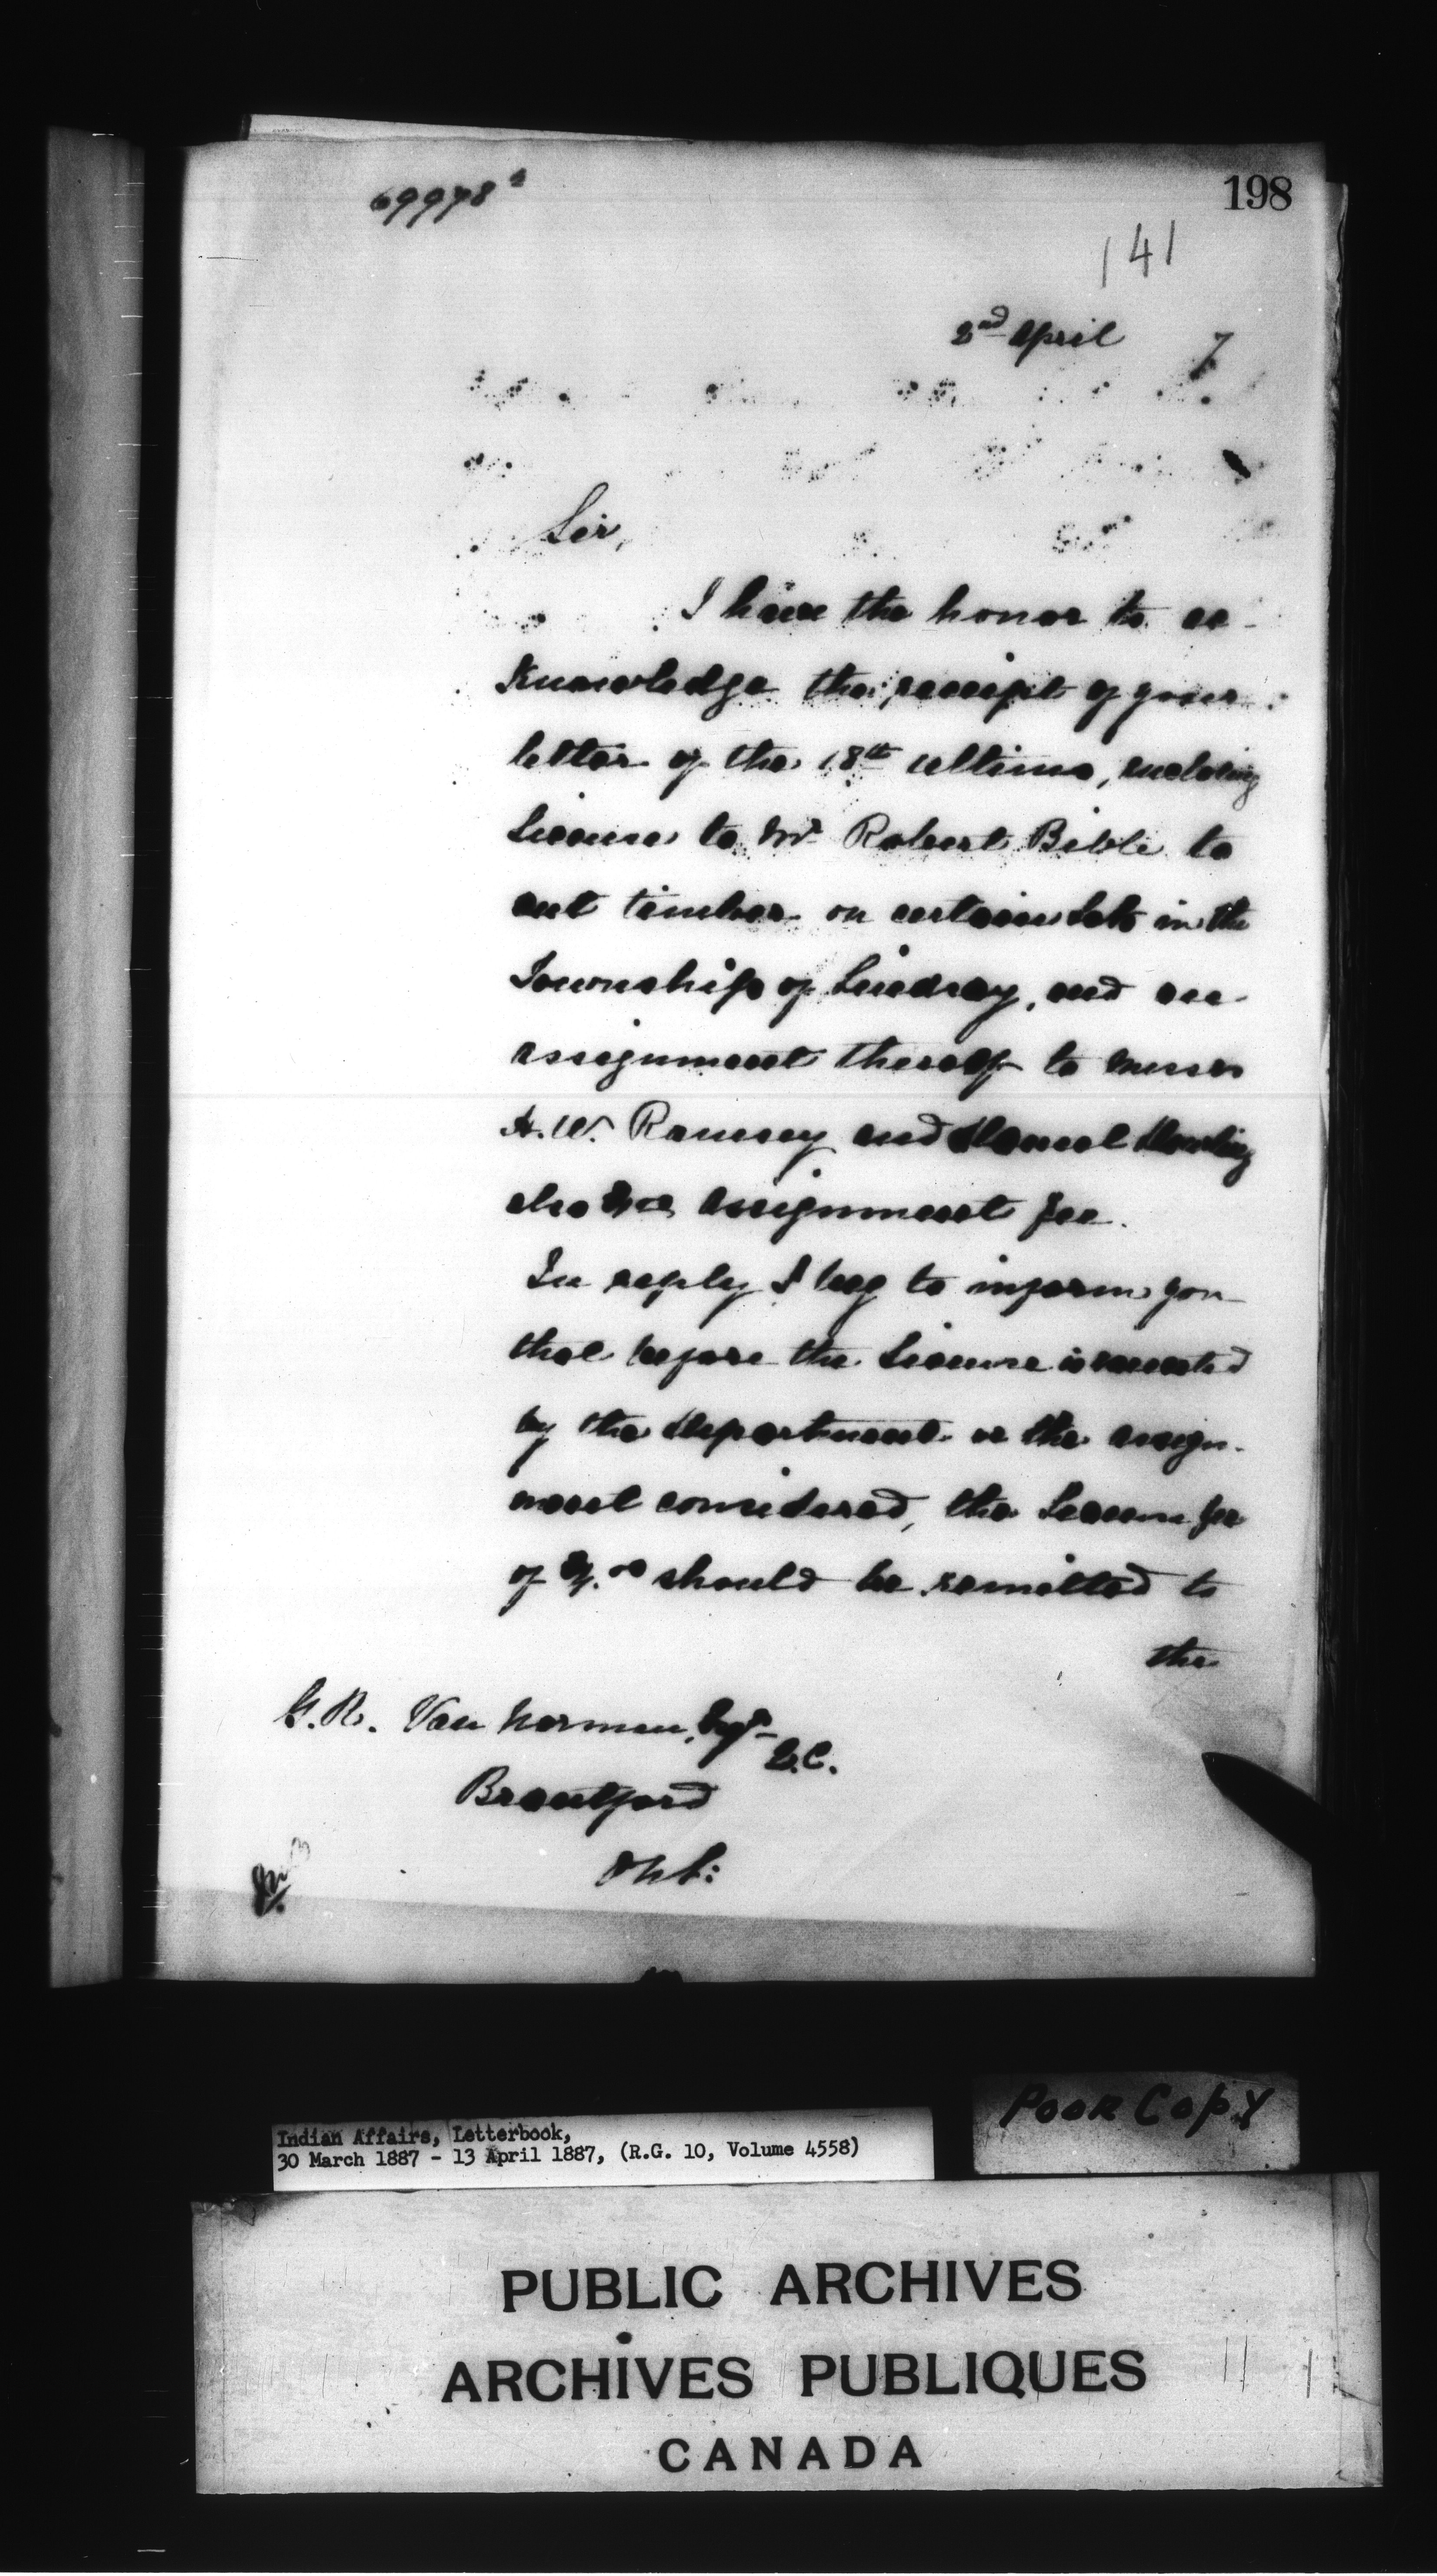 69978
198
141
2nd April 7
Sir,
I have the honor to ac-
knowledge the receipt of your
letter of the 18th ultimo, enclosing
License to Mr Robert Bible to
cut timber on certain Lots in the
Township of Lindsay, and an
assignment thereof to Messrs
A.W. Ramsey and
also assignment fee.
In reply I beg to inform you
that before the License is executed
by the Department or the assign-
ment considered, the License fee
of should be remitted to
the
G.R. Van Norman, Esqr
Q.C.
Brantford
Ont:
Poor Copy
Indian Affairs, Letterbook,
30 March 1887 - 13 April 1887, (R.G. 10, Volume 4558)
PUBLIC ARCHIVES
ARCHIVES PUBLIQUES
CANADA